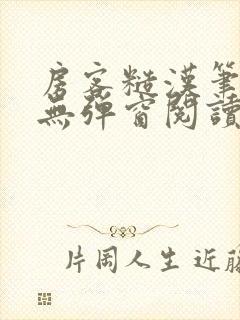 房客糙漢筆
無彈窗閱讀
片岡人生 近藤